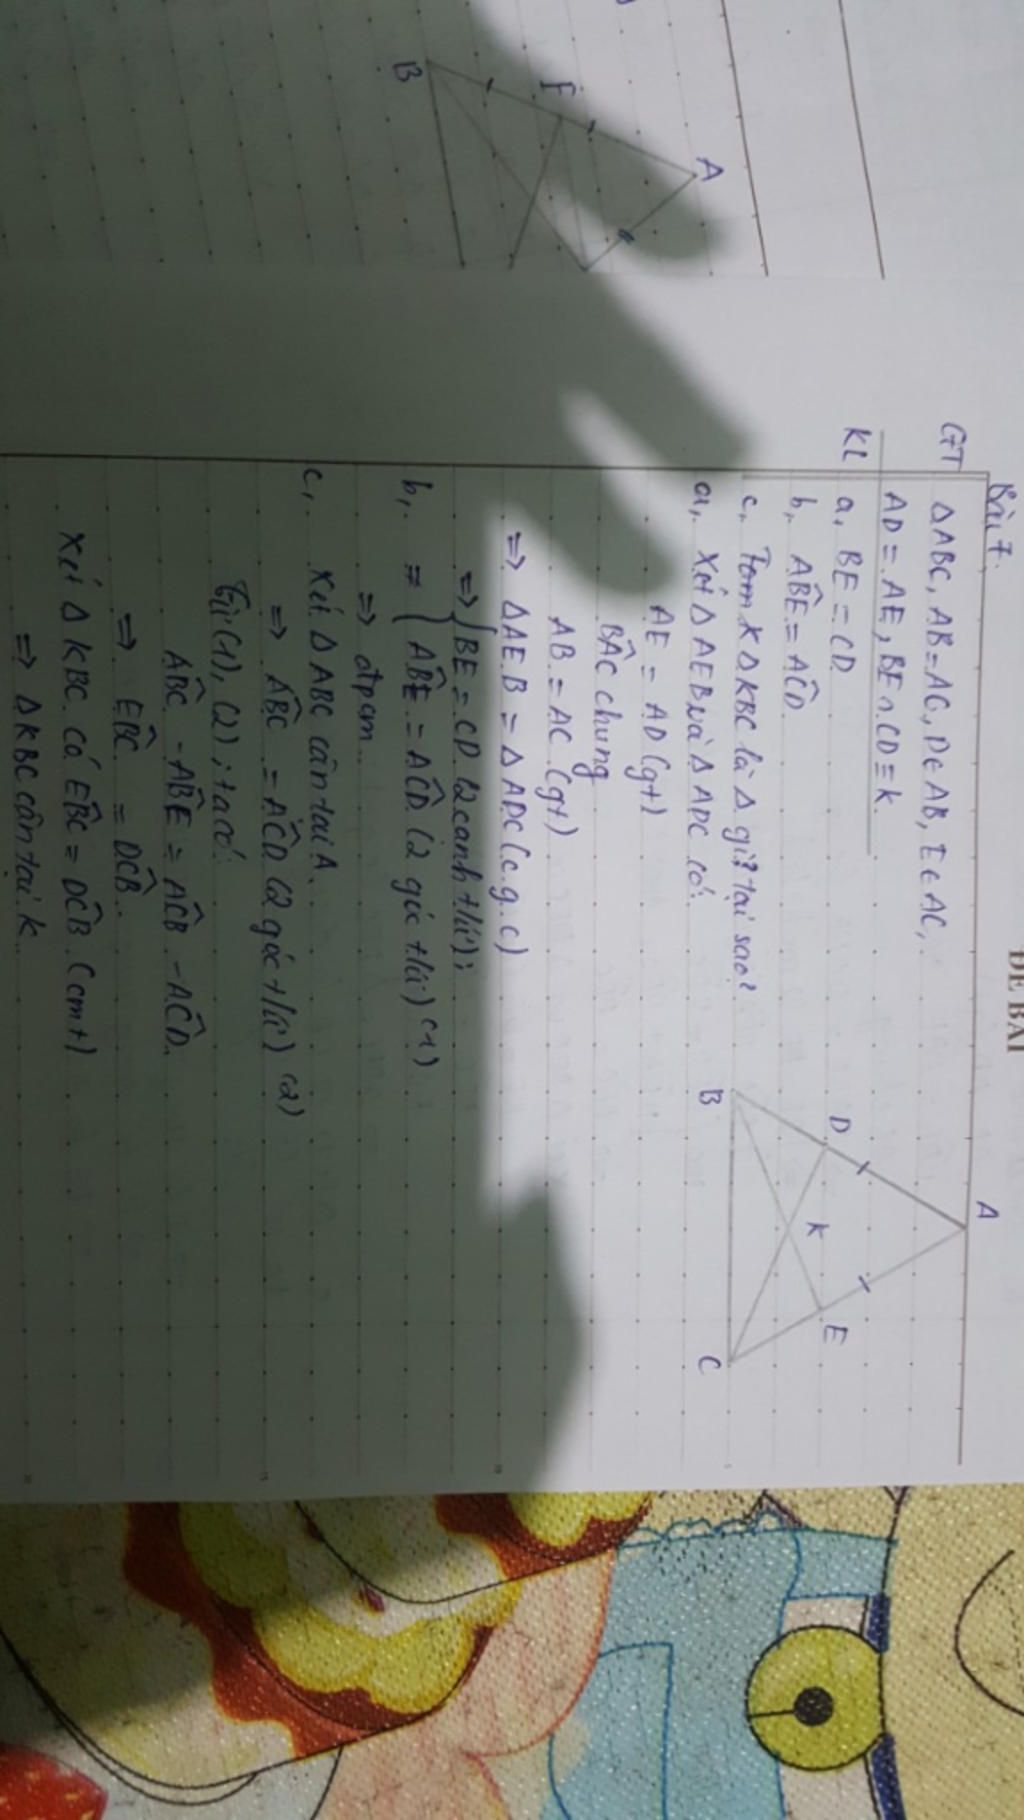 ĐỀ BÀI
Bài 7.
GT ΔABC, AB=AC, D∈AB, E∈AC,
AD=AE, BE∩CD=K
KL a, BE=CD
b, ABÊ=AĈD
c, ΔKBC là Δ gì? tại sao?
a, Xét ΔAEB và ΔADC có:
AE=AD (gt)
BÂC chung
AB=AC (gt)
⇒ ΔAEB=ΔADC (c.g.c)
⇒ BE=CD (2 cạnh t/ứ);
b, ⇒ AB̂E=AĈD (2 góc t/ứ) (1)
⇒ đpcm
c, Xét ΔABC cân tại A
⇒ AB̂C=AĈD (2 góc t/ứ) (2)
Từ (1), (2); ta có:
AB̂C-AB̂E=AĈB-AĈD
⇒ EB̂C=DĈB
Xét ΔKBC có EB̂C=DĈB (cmt)
⇒ ΔKBC cân tại K
A
D
E
K
B
C
A
F
B